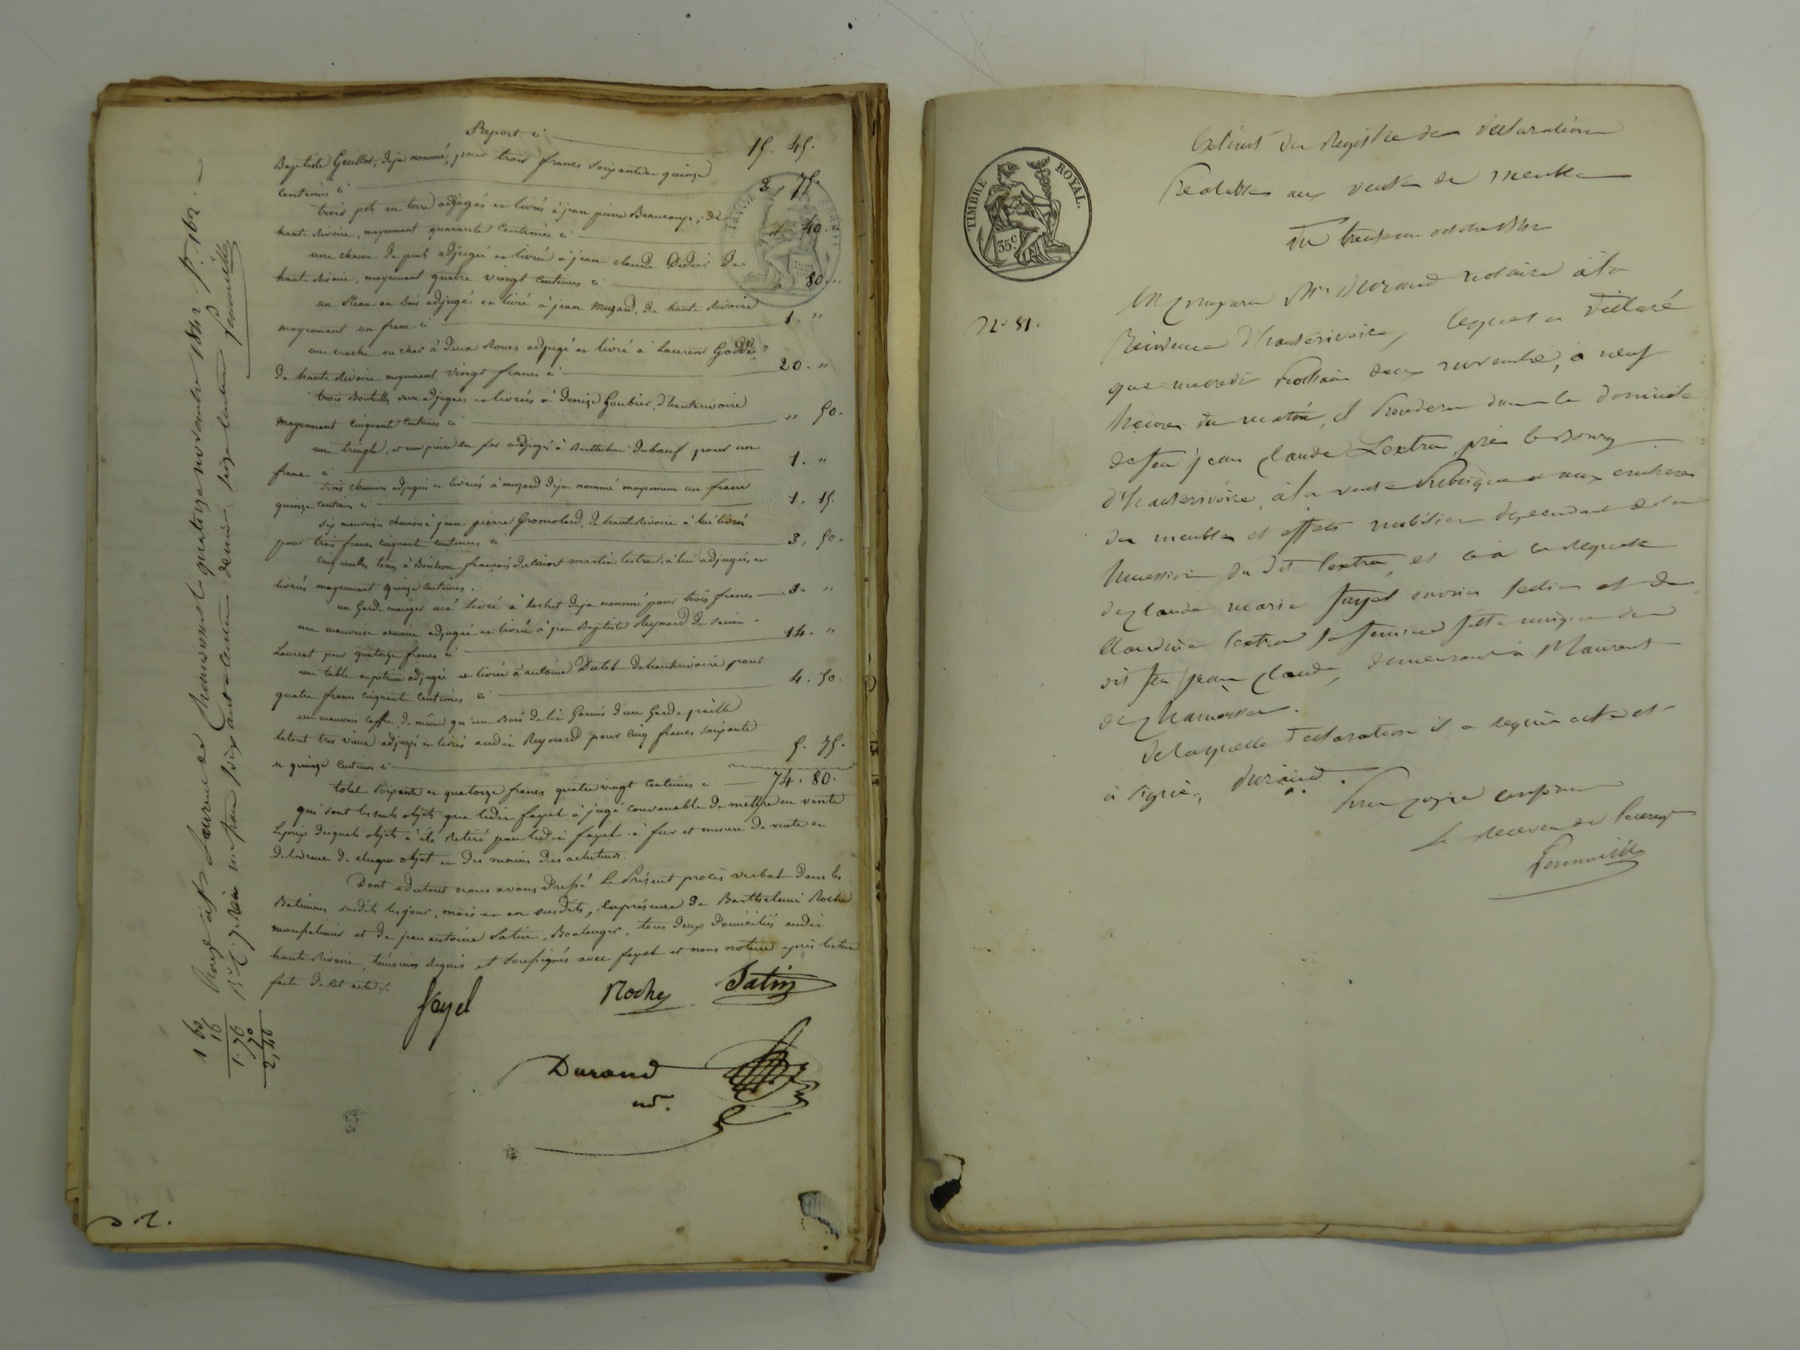 Report ci 15. 45.
Baptiste Guillot, deja nommé, pour trois francs soixante et quinze
centimes ci 3 75.
trois pots en terre adjugés et livrés à jean pierre Beaucoup, de
haute Rivoire, moyennant quarante centimes ci " 40.
une chaine de puit adjugée et livrée à jean claude Didier de
haute Rivoire, moyennant quatre vingt centimes ci 80. "
un Sceau en Bois adjugé et livré à jean Muzard, de haute Rivoire
moyennant un franc ci 1. "
à deux Roues adjugé et livré à Laurent
de haute Rivoire moyennant vingt francs ci 20. "
trois Bouteilles verre adjugées et livrées à Denize Goubier, d'hauterivoire
moyennant cinquante centimes ci " 50.
une tringle, et une pioche en fer adjugés à Barthelemi Duboeuf pour un
franc ci 1. "
trois adjugés et livrés à muzard deja nommé moyennant un franc
quinze centimes ci 1. 15.
six mauvais à jean pierre Gromolard, de haute Rivoire à lui livrés
pour trois francs cinquante centimes ci 3. 50.
à lui adjugés et
livrés moyennant quinze centimes.
un Garde manger usé livré à Rochet deja nommé pour trois francs 3. "
une mauvaise armoire adjugée et livrée à jean Baptiste Reynard de Saint
Laurent pour quatorze francs ci 14. "
une table en adjugée et livrée à antoine de hauterivoire pour
quatre francs cinquante centimes ci 4. 50.
un mauvais coffre de même qu'un Bois de lit Garni d'un Garde paille
le tout très vieux adjugés et livrés audit Reynard pour cinq francs soixante
et quinze centimes ci 5. 75.
total soixante et quatorze francs quatre vingt centimes ci 74. 80.
qui sont les seuls objets que ledit fayel à jugé convenable de mettre en vente
le prix desquels objets à été Retiré par ledit fayel à fur et mesure de vente et
délivrance de chaque objet et des mains des acheteurs.
Dont et du tout nous avons Dressé le Présent procès verbal dans les
Batimens susdits les jour, mois et an susdits, en présence de Barthelemi Roche
et de jean antoine Satin, Boulanger, tous deux Domiciliés audit
haute Rivoire, témoins Requis et soussignés avec fayel et nous notaire après lecture
faite de cet acte.
fayel Roche Satin
Durand
nre.
Enregistré à St Laurent de Chamousset le quatorze novembre 1842 f° 162
Reçu un franc soixante centimes decime seize centimes
1 60
16
1. 76
70
2,46
TIMBRE ROYAL.
35 c
Extrait du Registre des Déclarations
Préalables aux ventes de meubles
Du trente un octobre 1842
N° 81.
Est comparu Mr Durand notaire à la
Résidence d'hauterivoire, lequel a Déclaré
que mercredi Prochain deux novembre, à neuf
heures du matin, il Procedera dans le domicile
de feu jean claude Lextra près le Bourg
d'hauterivoire, à la vente Publique et aux encheres
des meubles et effets mobiliers dépendant de la
succession du dit Lextra, et ce à la Requete
de claude marie fayel ouvrier et de
Claudine Lextra sa femme fille unique du
dit feu jean claude, demeurant à St Laurent
de chamousset.
de laquelle Déclaration il a requis acte et
a signé, Durand.
Pour copie conforme
Le Receveur de l'enregt